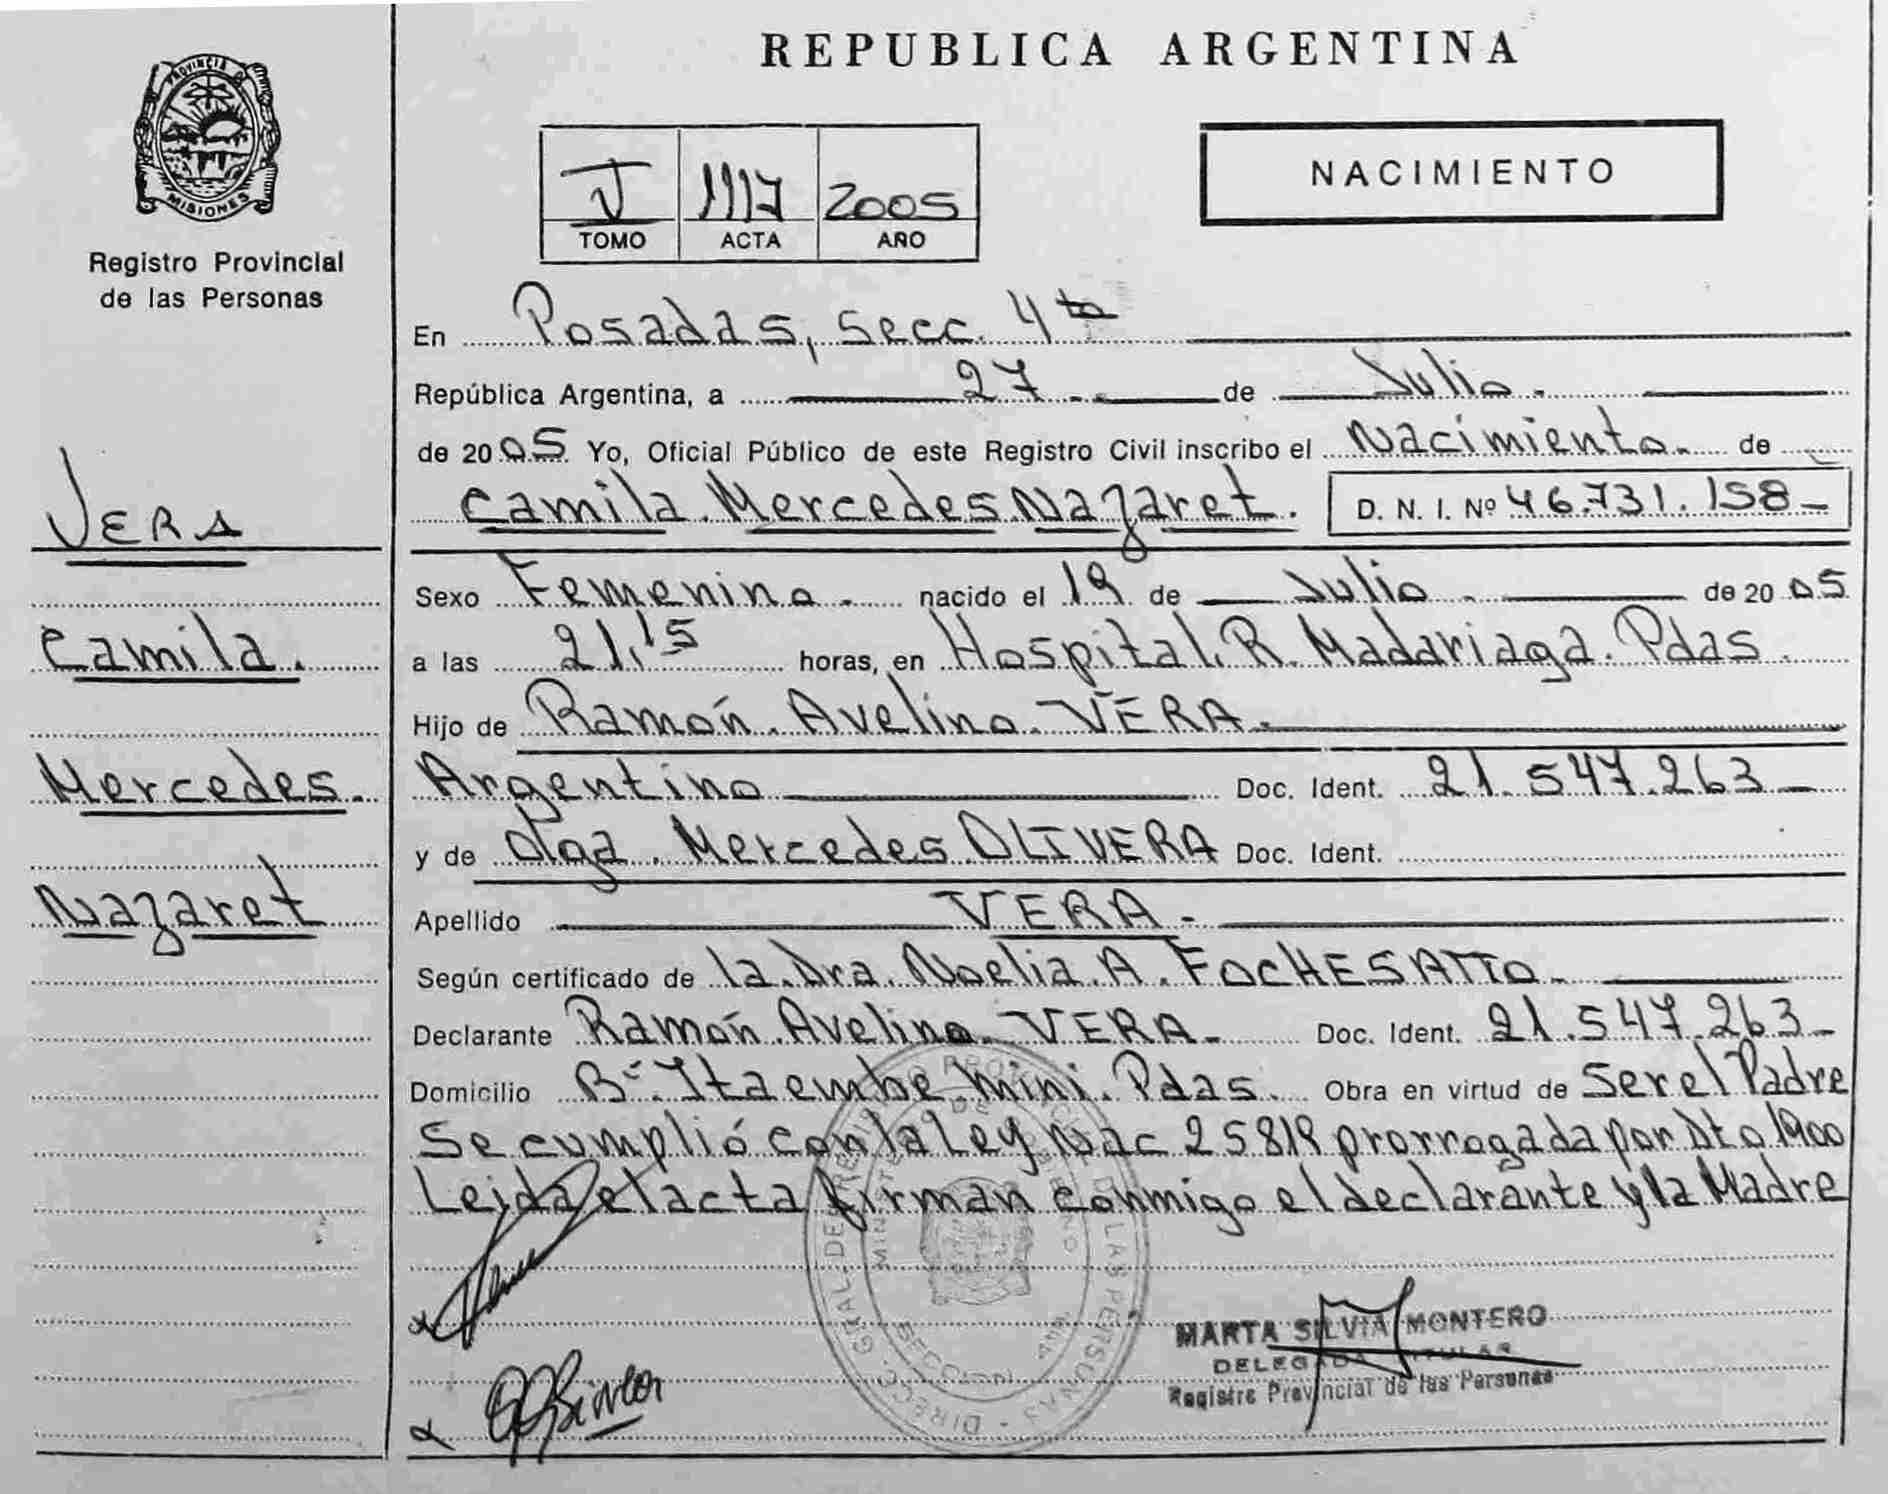 REPUBLICA ARGENTINA
PROVINCIA DE
MISIONES
Registro Provincial
de las Personas
NACIMIENTO
1117 2005
TOMO ACTA AÑO
En Posadas, Secc. 4ta
República Argentina, a 27 de Julio.
de 2005 Yo, Oficial Público de este Registro Civil inscribo el Nacimiento. de
Camila Mercedes Nazaret. D. N. I. Nº 46.731.158-
Sexo Femenino. nacido el 19 de Julio. de 2005
a las 21,15 horas, en Hospital R. Madariaga. Pdas.
Hijo de Ramón Avelino VERA.
Argentino Doc. Ident. 21.547.263
y de Olga Mercedes OLIVERA Doc. Ident.
Apellido VERA.
Según certificado de la Dra. Noelia A. FOCHESATTO.
Declarante Ramón Avelino VERA Doc. Ident. 21.547.263
Domicilio Bº Itaembe Mini. Pdas. Obra en virtud de Ser el Padre
Se cumplió con la Ley Nac 25819 prorrogada por Dto 1900
Leida el acta firman conmigo el declarante y la Madre
VERA
Camila.
Mercedes.
Nazaret
MARTA SILVIA MONTERO
DELEGADA TITULAR
Registro Provincial de las Personas